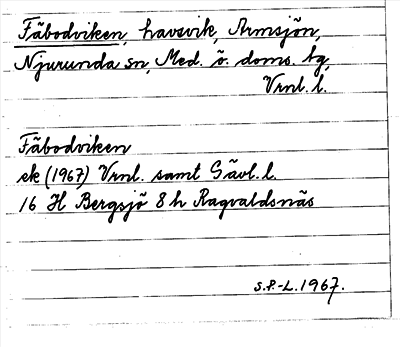 Fäbodviken, havsvik, Armsjön,
Njurunda sn, Med. ö. doms. tg,
Vrnl. l.
Fäbodviken
ek (1967) Vrnl. samt Gävl. l.
16 H Bergsjö 8 h Ragvaldsnäs
S.P.-L. 1967.